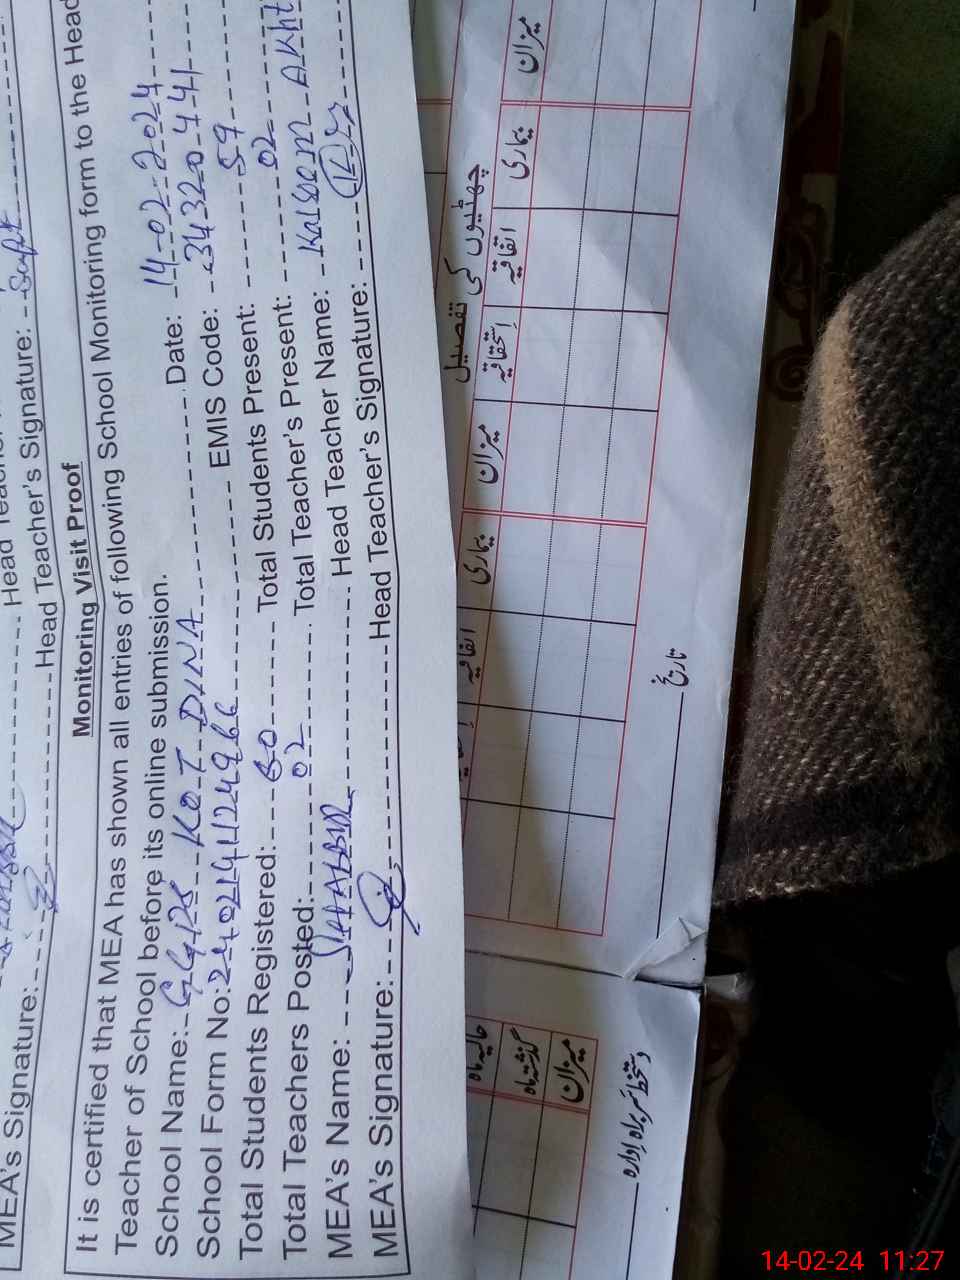 Head Teacher
MEA's Signature: Head Teacher's Signature:
Monitoring Visit Proof
It is certified that MEA has shown all entries of following School Monitoring form to the Head
Teacher of School before its online submission.
School Name: GGPS KOT DINA Date: 14-02-2024
School Form No: EMIS Code: 34320441
Total Students Registered: 60 Total Students Present: 59
Total Teachers Posted: 02 Total Teacher's Present: 02
MEA's Name: Head Teacher Name: Kalsoom Akht
MEA's Signature: Head Teacher's Signature:
چھٹیوں کی تفصیل
میزان بیماری اتفاقیہ استحقاقیہ میزان بیماری اتفاقیہ
تاریخ
حالیہ ماہ
گذشتہ ماہ
میزان
دستخط سربراہ ادارہ
14-02-24 11:27